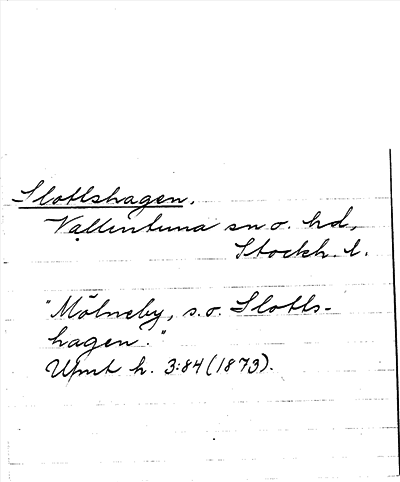 Slottshagen.
Vallentuna sn o. hd,
Stockh. l.
"Mölneby, s.o. Slotts-
hagen."
Upmt h. 3:84 (1873).